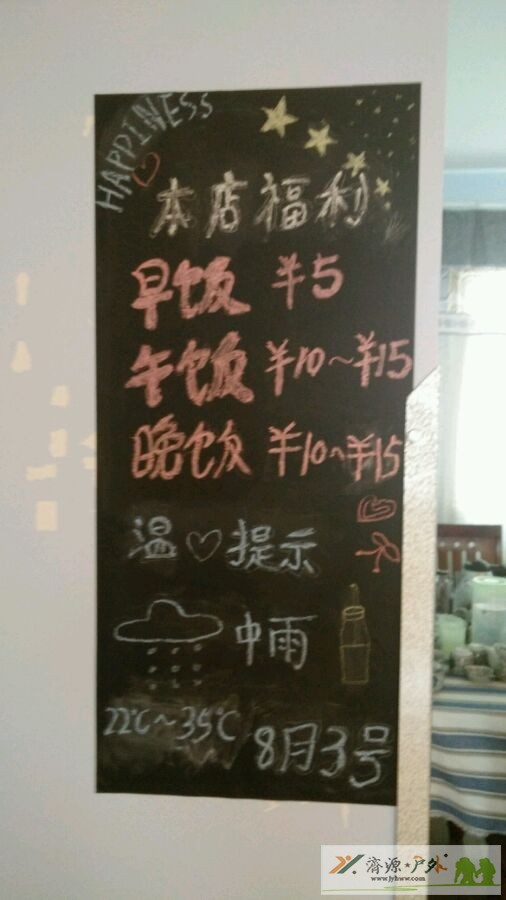 HAPPINESS
本店福利
早饭 ¥5
午饭 ¥10~¥15
晚饭 ¥10~¥15
温♡提示
中雨
22℃~35℃
8月3号
济源★户外
www.jyhww.com